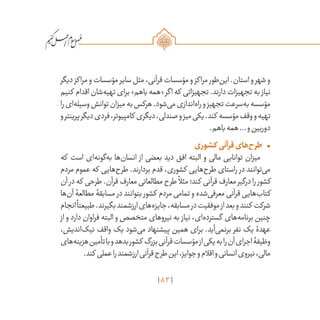 و شهر و استان. این‌طور مراکز و مؤسسات قرآنی، مثل سایر مؤسسات و مراکز دیگر
نیاز به تجهیزات دارند. تجهیزاتی که اگر «همه باهم» برای تهیه‌شان اقدام کنیم
مؤسسه به‌سرعت تجهیز و راه‌اندازی می‌شود. هرکس به میزان توانش وسیله‌ای را
تهیه و وقف مؤسسه کند. یکی میز و صندلی، دیگری کامپیوتر، فردی دیگر پرینتر و
دوربین و... همه باهم.
• طرح‌های قرآنی کشوری
میزان توانایی مالی و البته افق دید بعضی از انسان‌ها به‌گونه‌ای است که
می‌توانند در راستای طرح‌هایی کشوری، قدم بردارند. طرح‌هایی که عموم مردم
کشور را درگیر معارف قرآنی کند؛ مثلاً طرح مطالعاتی معارف قرآن. طرحی که در آن
کتاب‌هایی قرآنی معرفی شده و تمامی مردم کشور بتوانند در مسابقهٔ مطالعهٔ آن‌ها
شرکت کنند و بعد از موفقیت در مسابقه، جایزه‌های ارزشمند بگیرند. طبیعتاً انجام
چنین برنامه‌های گسترده‌ای، نیاز به نیروهای متخصص و البته فراوان دارد و از
عهدهٔ یک نفر برنمی‌آید. برای همین پیشنهاد می‌شود یک واقف نیک‌اندیش،
وظیفهٔ اجرای آن را به یکی از مؤسسات قرآنی بزرگ کشور بدهد و با تأمین هزینه‌های
مالی، نیروی انسانی و اقلام و جوایز، این طرح قرآنی ارزشمند را عملی کند.
|۸۳|